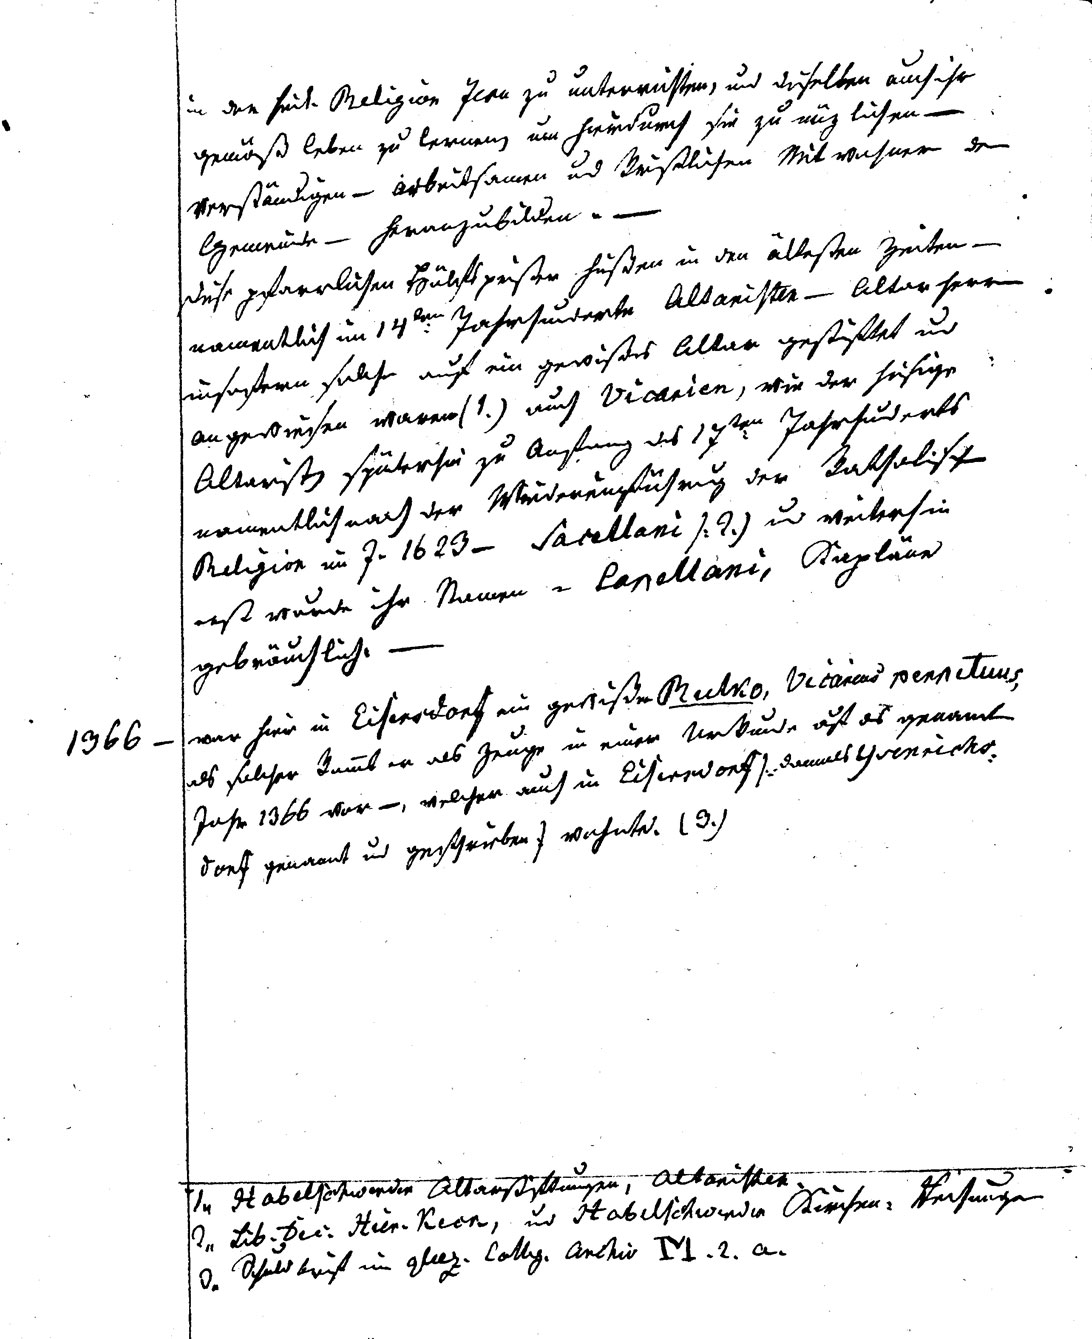 in der heil. Religion Jesu zu unterrichten, und dieselben auch ihr
gemäß leben zu lernen, um hierdurch sie zu nüzlichen —
verständigen — arbeitsamen und kristlichen Mitwohner der
Gemeinde — heranzubilden. —
Diese pfarrlichen Hülfspriester hießen in den ältesten Zeiten —
namentlich im 14ten Jahrhunderte Altaristen — Altarherrn
insofern solche auf ein gewißes Altar gestiftet und
angewiesen waren (1.) auch Vicarien, wie der hiesige
Altarist, späterhin zu Anfang des 17ten Jahrhunderts
namentlich nach der Wiedereinführung der Katholisch
Religion im J. 1623 — Sacellani (: 2.) und weiterhin
erst wurde ihr Namen = Capellani, Kapläne
gebräuchlich. —
1366 — war hier in Eisersdorf ein gewißer Rutko, Vicarius perpetuus,
als solcher kommt er als Zeuge in einer Urkunde auf das genannte
Jahr 1366 vor —, welcher auch in Eisersdorf (: damals
dorf genannt und geschrieben) wohnte. (3.)
1. Habelschwerdter Altarstiftungen, Altaristen.
2. Lib. Dec. Hier. Keck, und Habelschwerdter Kirchen=
3. Schuldbrief im glaez. Colleg. Archiv M. 2. a.